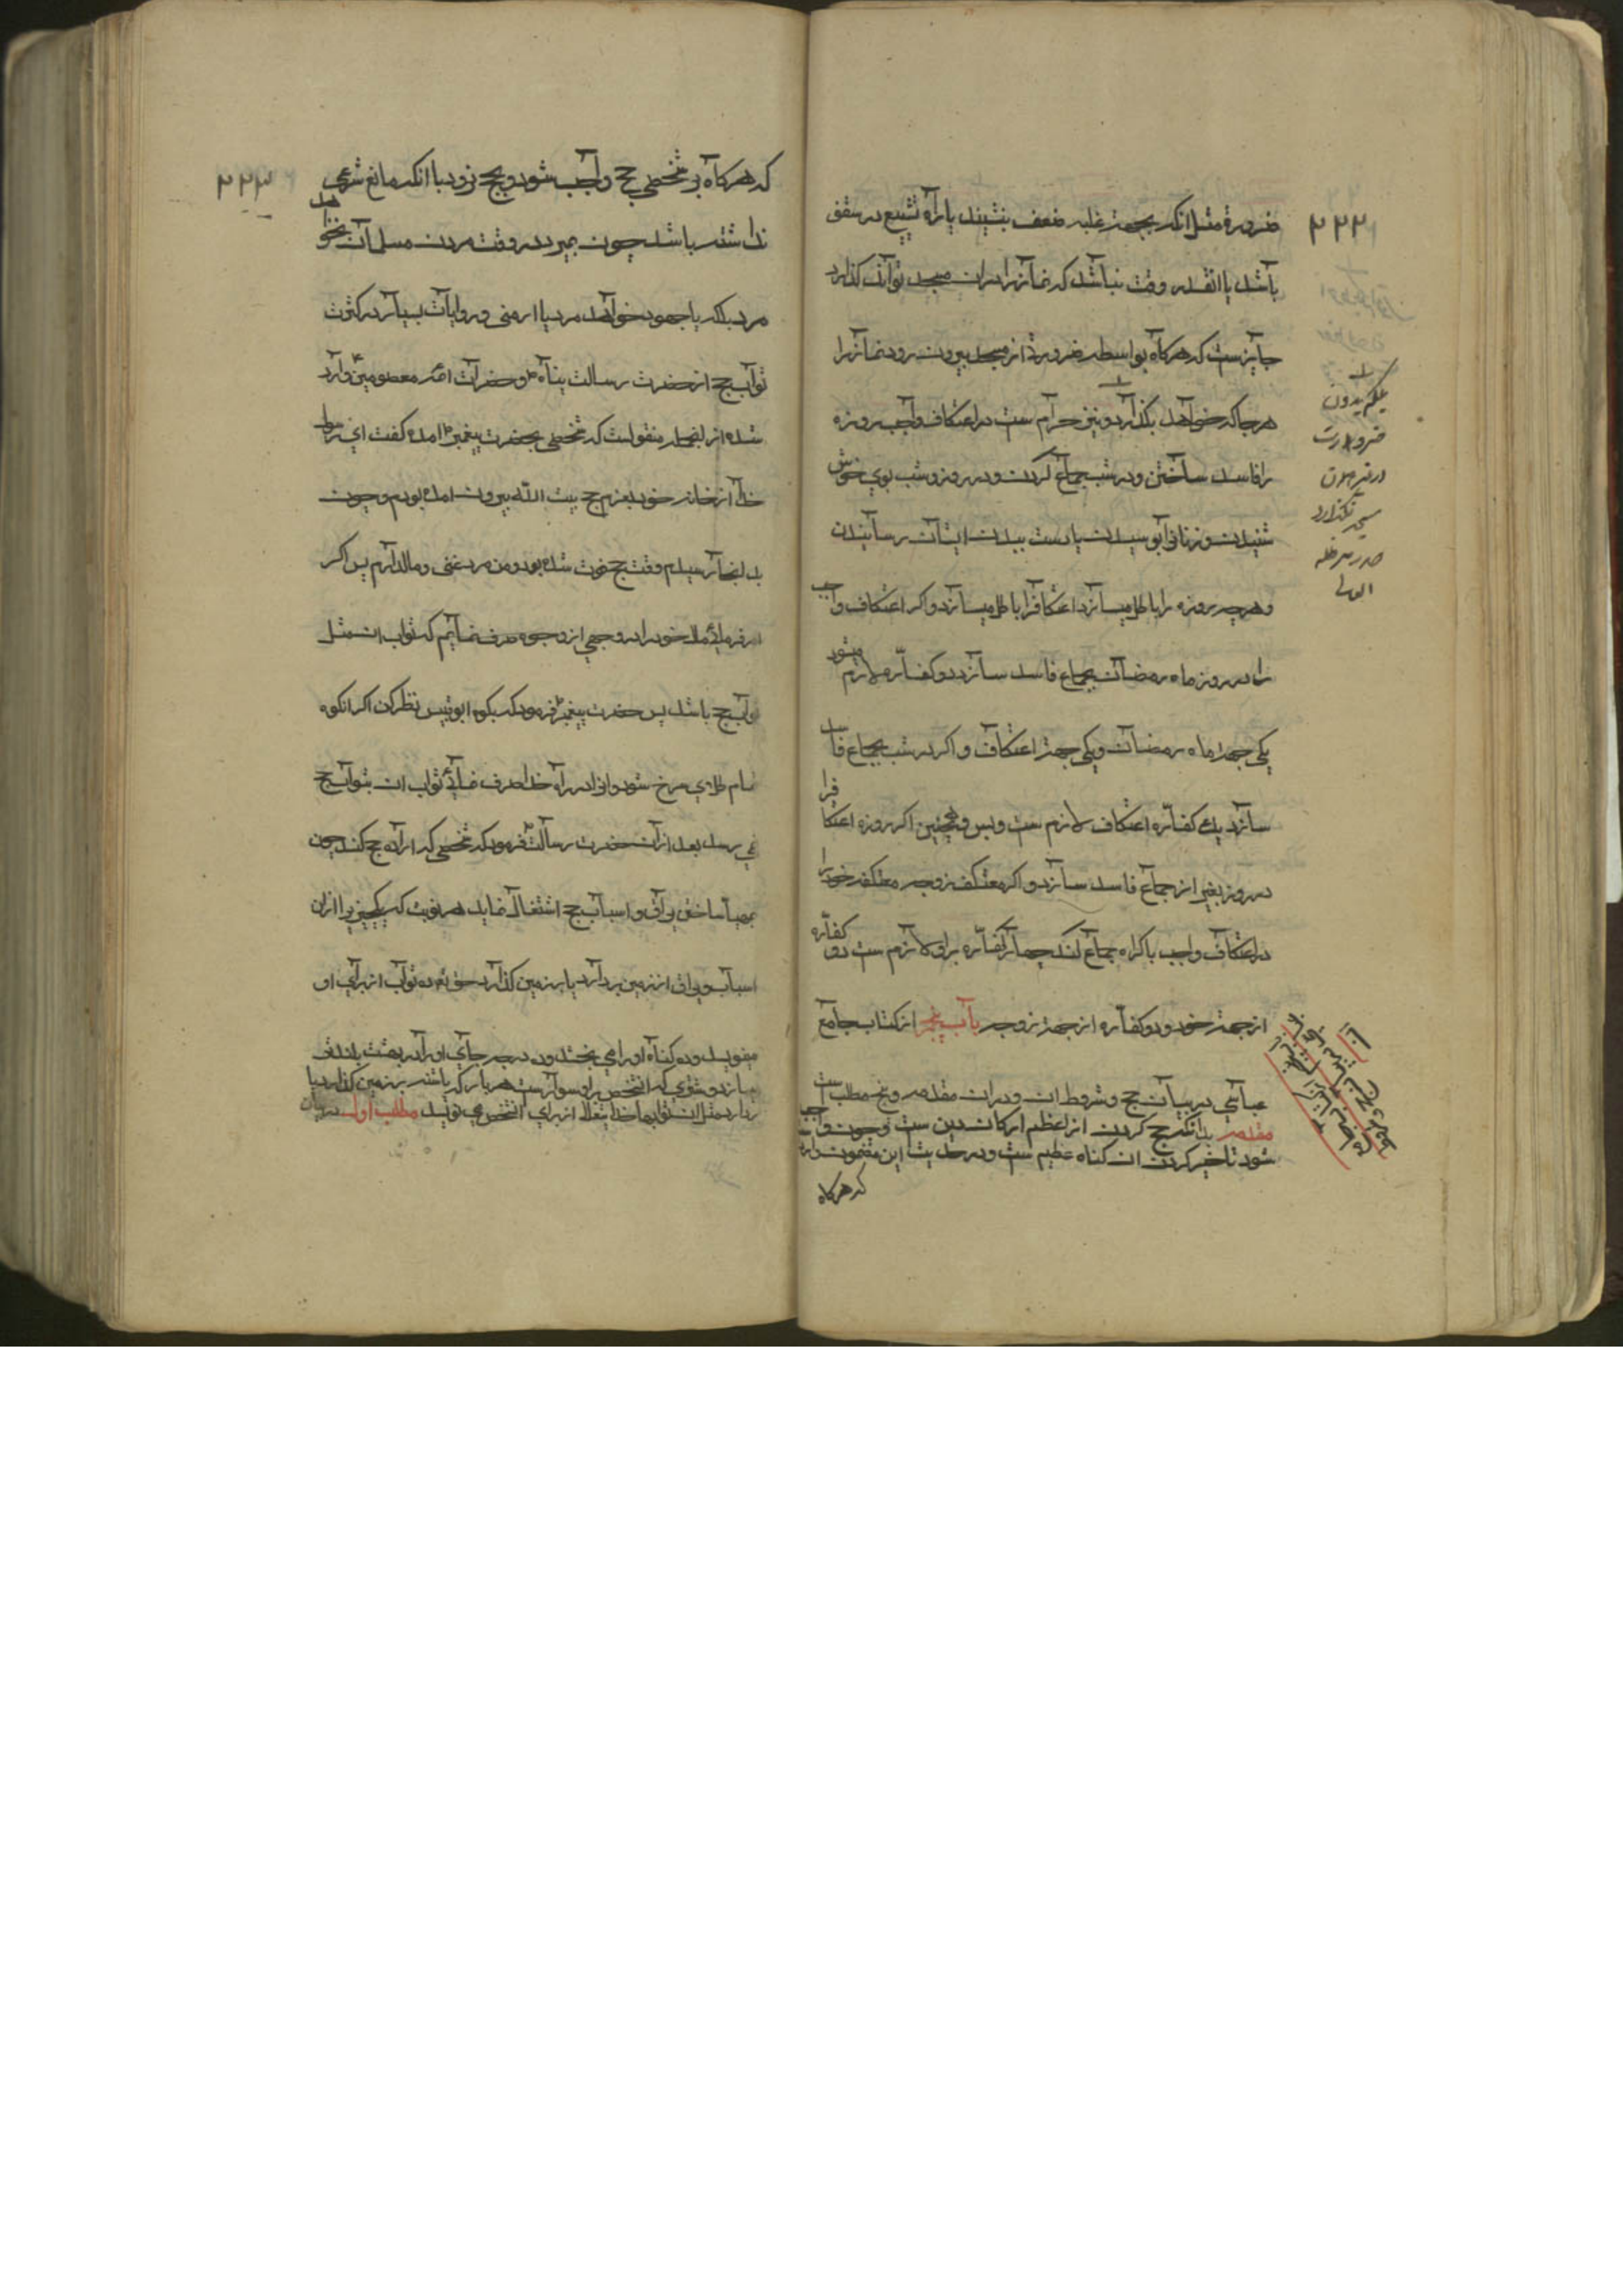 ۲۲۲
ضرورة مثل انکه بجهته غلبه ضعف بنشیند یا راه تشییع در سقف
باشد یا انقدر وقت نباشد که نماز را در ان مسجد تواند کذارد
جایزست که هرکاه بواسطه ضرورة از مسجد بیرون رود نماز را
هرجا که خواهد بکذارد و نیز حرام ست در اعتکاف واجب روزه
را فاسد ساختن و در شب جماع کردن و در روز و شب بوی خوش
شنیدن و زنانرا بوسیدن یا دست ببدن ایشان رسانیدن
و هرچه روزه را باطل میسازد اعتکافرا باطل میسازد و اکر اعتکاف واجب
را در روز ماه رمضان بجماع فاسد سازد دو کفاره لازم میشود
یکی جهة ماه رمضان و یکی جهة اعتکاف و اکر در شب بجماع فاسد
سازد یک کفاره اعتکاف لازم ست و بس و همچنین اکر روزه اعتکافرا
در روز بغیر از جماع فاسد سازد و اکر معتکف زوجه معتکفه خود را
در اعتکاف واجب باکراه جماع کند چهار کفاره براو لازم ست دو کفاره
از جهة خود و دو کفاره از جهة زوجه باب پنجم از کتاب جامع
عباسی در بیان حج و شروط ان و در ان مقدمه و پنج مطلب ست
مقدمه بدانکه حج کردن از اعظم ارکان دین ست و چون واجب
شود تاخیر کردن ان کناه عظیم ست و در حدیث این مضمون وارد
که هرکاه
بلکه بدون
ضرورت
در غیر ان
مسجد نکذارد
صدر
۲۲۳
که هرکاه بر شخصی حج واجب شود و بحج نرود با انکه مانع شرعی
نداشته باشد چون بمیرد در وقت مردن مسلمان نخواهد
مرد بلکه یا جهود خواهد مرد یا ارمنی و روایات بسیار در کثرت
ثواب حج از حضرت رسالت پناه ص و حضرات ائمه معصومین ع وارد
شده از انجمله منقولست که شخصی بحضرت پیغمبر ص امده کفت ای رسول
خدا از خانه خود بعزم حج بیت الله بیرون امده بودم و چون
بدانجا رسیدم وقت حج فوت شده بود و من مرد غنی و مالدارم پس اکر
امر فرمائی مال خود را در وجهی از وجوه صرف نمایم که ثواب ان مثل
ثواب حج باشد پس حضرت پیغمبر ص فرمود که بکوه ابوقبیس نظر کن اکر انکوه
تمام طلای سرخ شود و انرا در راه خدا صرف نمائی ثواب ان بثواب حج
نمی رسد بعد از ان حضرت رسالت ص فرمود که شخصی که اراده حج کند چون
بمهیا ساختن یراق و اسباب حج اشتغال نماید هر نوبت که یکچیزی را از ان
اسباب و یراق از زمین بردارد یا بر زمین کذارد حق تع ده ثواب از برای او
مینویسد و ده کناه او را می بخشد و ده درجه جای او را در بهشت بلند تر
میسازد و شتری که انشخص بر او سوار ست هر بار که پا شتر بر زمین کذارد یا
بردارد مثل ان ثوابها خدایتعالی از برای انشخص می نویسد مطلب اول در بیان